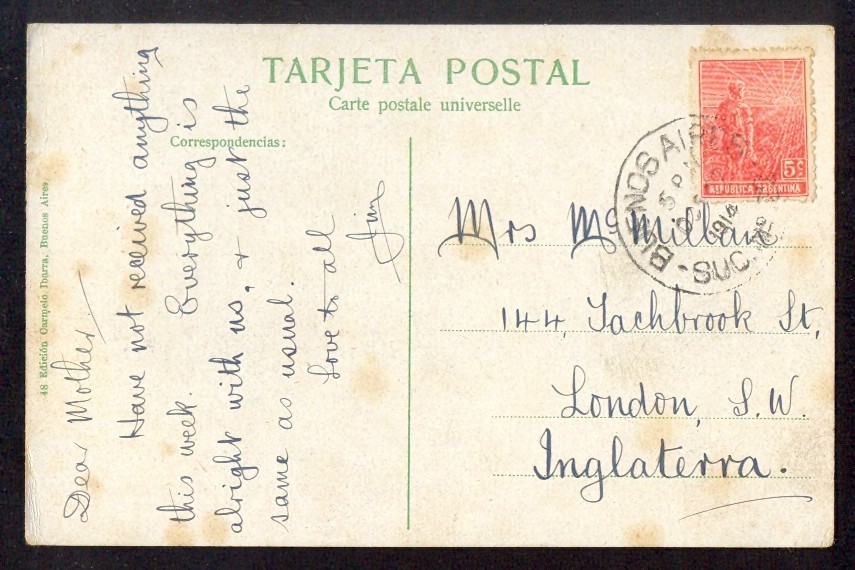 TARJETA POSTAL
Carte postale universelle
Correspondencias:
48 Edición Carmelo Ibarra, Buenos Aires
Dear Mother.
Have not received anything
this week. Everything is
alright with us, & just the
same as usual.
Love to all
Jim
5c
REPUBLICA ARGENTINA
BUENOS AIRES
1914
SUC.
Mrs McMillan
144, Tachbrook St,
London, S.W.
Inglaterra.